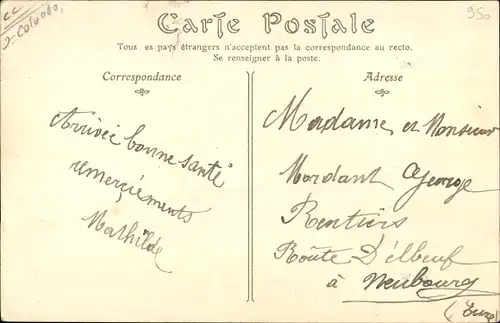 J-Calvados,
950
Carte Postale
Tous es pays étrangers n'acceptent pas la correspondance au recto.
Se renseigner à la poste.
Correspondance
Arrivée bonne santé
remerçiements
Mathilde
Adresse
Madame et Monsieur
Mordant George
Rentiers
Route D'Elbeuf
à Neubourg
(Eure)